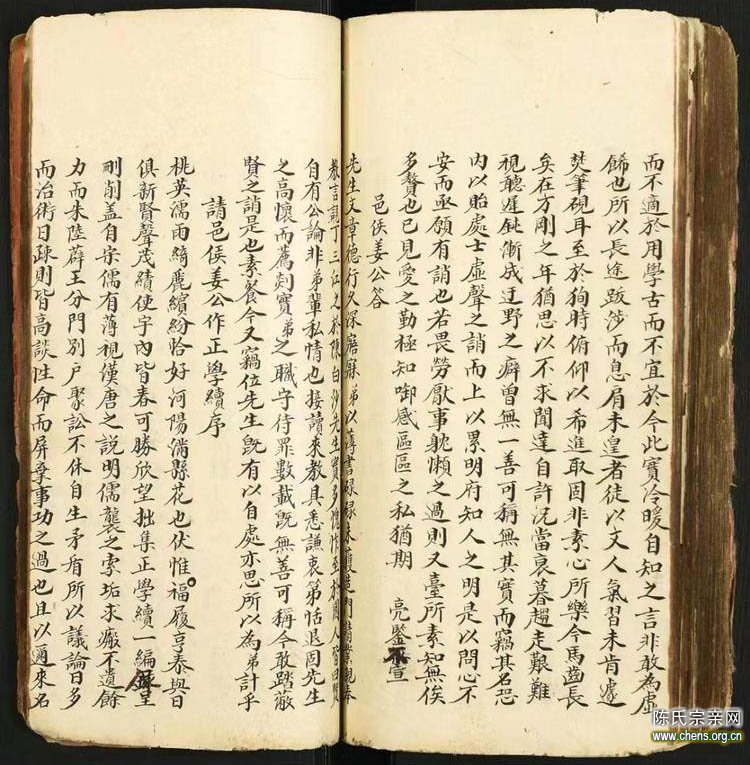 而不適於用學古而不宜於今此實冷暖自知之言非敢為虛
餙也所以長途跋涉而息肩未皇者徒以文人氣習未肯遽
焚筆硯耳至於狥時俯仰以希進取固非素心所樂今馬齒長
矣在方剛之年猶思以不求聞達自許況當衰暮趨走艱難
視聽遲鈍漸成迂野之癖曾無一善可稱無其實而竊其名恐
內以貽處士虛聲之誚而上以累明府知人之明是以問心不
安而亟顧有誚也若畏勞厭事躭懶之過則又臺所素知無俟
多贅也已見愛之勤極知啣感區區之私猶期 亮鑒不宣
邑侯姜公答
先生文章德行久深寤寐弟以薄書碌碌未獲造門請業親奉
教言說丁三江之於陳白沙先生實多愧怍至於國人皆曰賢
自有公論非弟輩私情也接讀來教具悉謙衷第恬退固先生
之高懷而薦剡實弟之職守待罪數載既無善可稱今敢踏蔽
賢之誚是也素餐今又竊位先生既有以自處亦思所以為弟計乎
請邑侯姜公作正學續序
桃英濡雨綺麗繽紛恰好河陽滿縣花也伏惟福履亨泰與日
俱新賢聲茂績使宇內皆春可勝欣望拙集正學續一編錄呈
刪削蓋自宋儒有薄視漢唐之說明儒襲之索垢求瘢不遺餘
力而朱陸薛王分門別戶聚訟不休自生矛盾所以議論日多
而治術日疎則皆高談性命而屏棄事功之過也且以邇來名
陈氏宗亲网
www.chens.org.cn